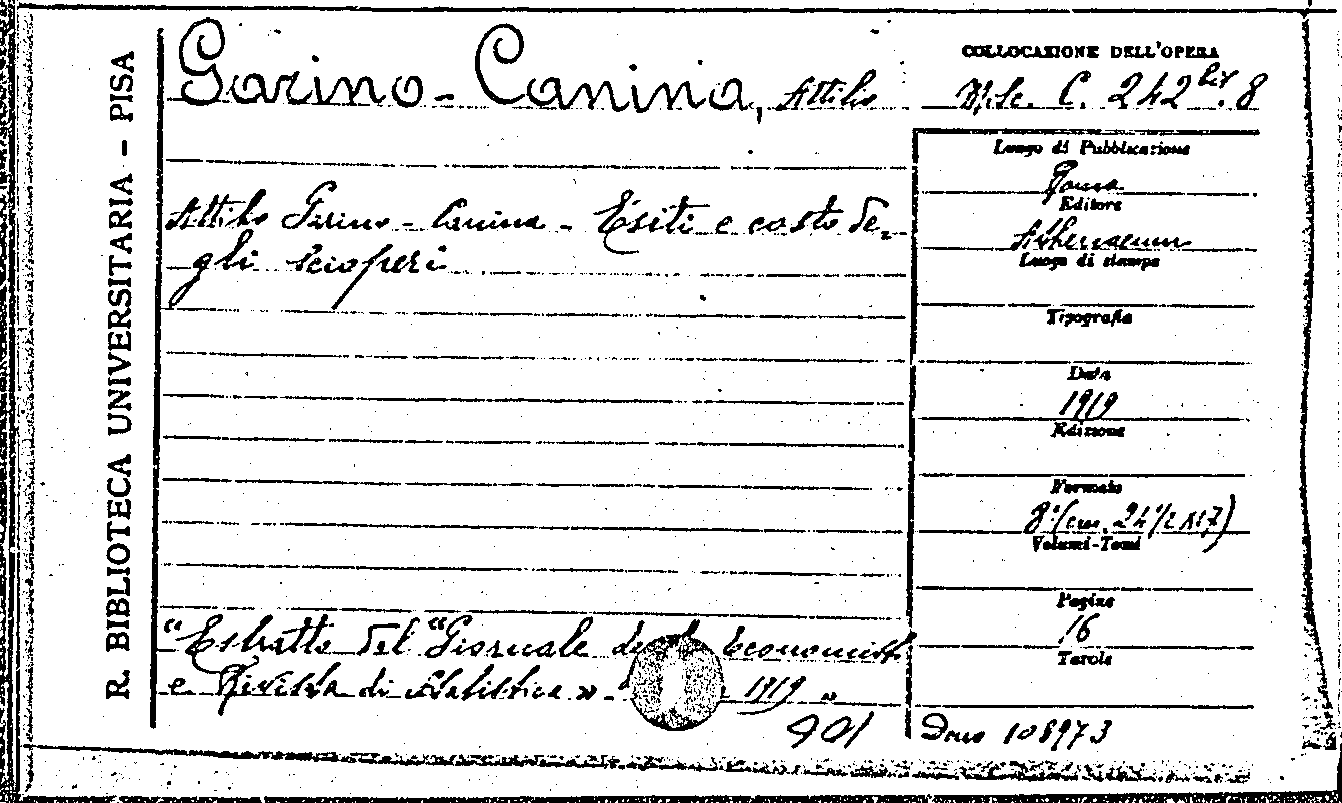 R. BIBLIOTECA UNIVERSITARIA - PISA
Garino-Canina, Attilio
COLLOCAZIONE DELL'OPERA
Misc. C. 242 bis. 8
Attilio Garino-Canina - Esiti e costo de-
gli scioperi
Luogo di Pubblicazione
Roma
Editore
Athenaeum
Luogo di stampa
Tipografia
Data
1919
Edizione
Formato
8° (cm. 24 1/2 x 17)
Volumi-Tomi
Pagine
16
Tavole
"Estratto del "Giornale degli Economisti
e Rivista di Statistica » - 1919 »
901
Dono 108973